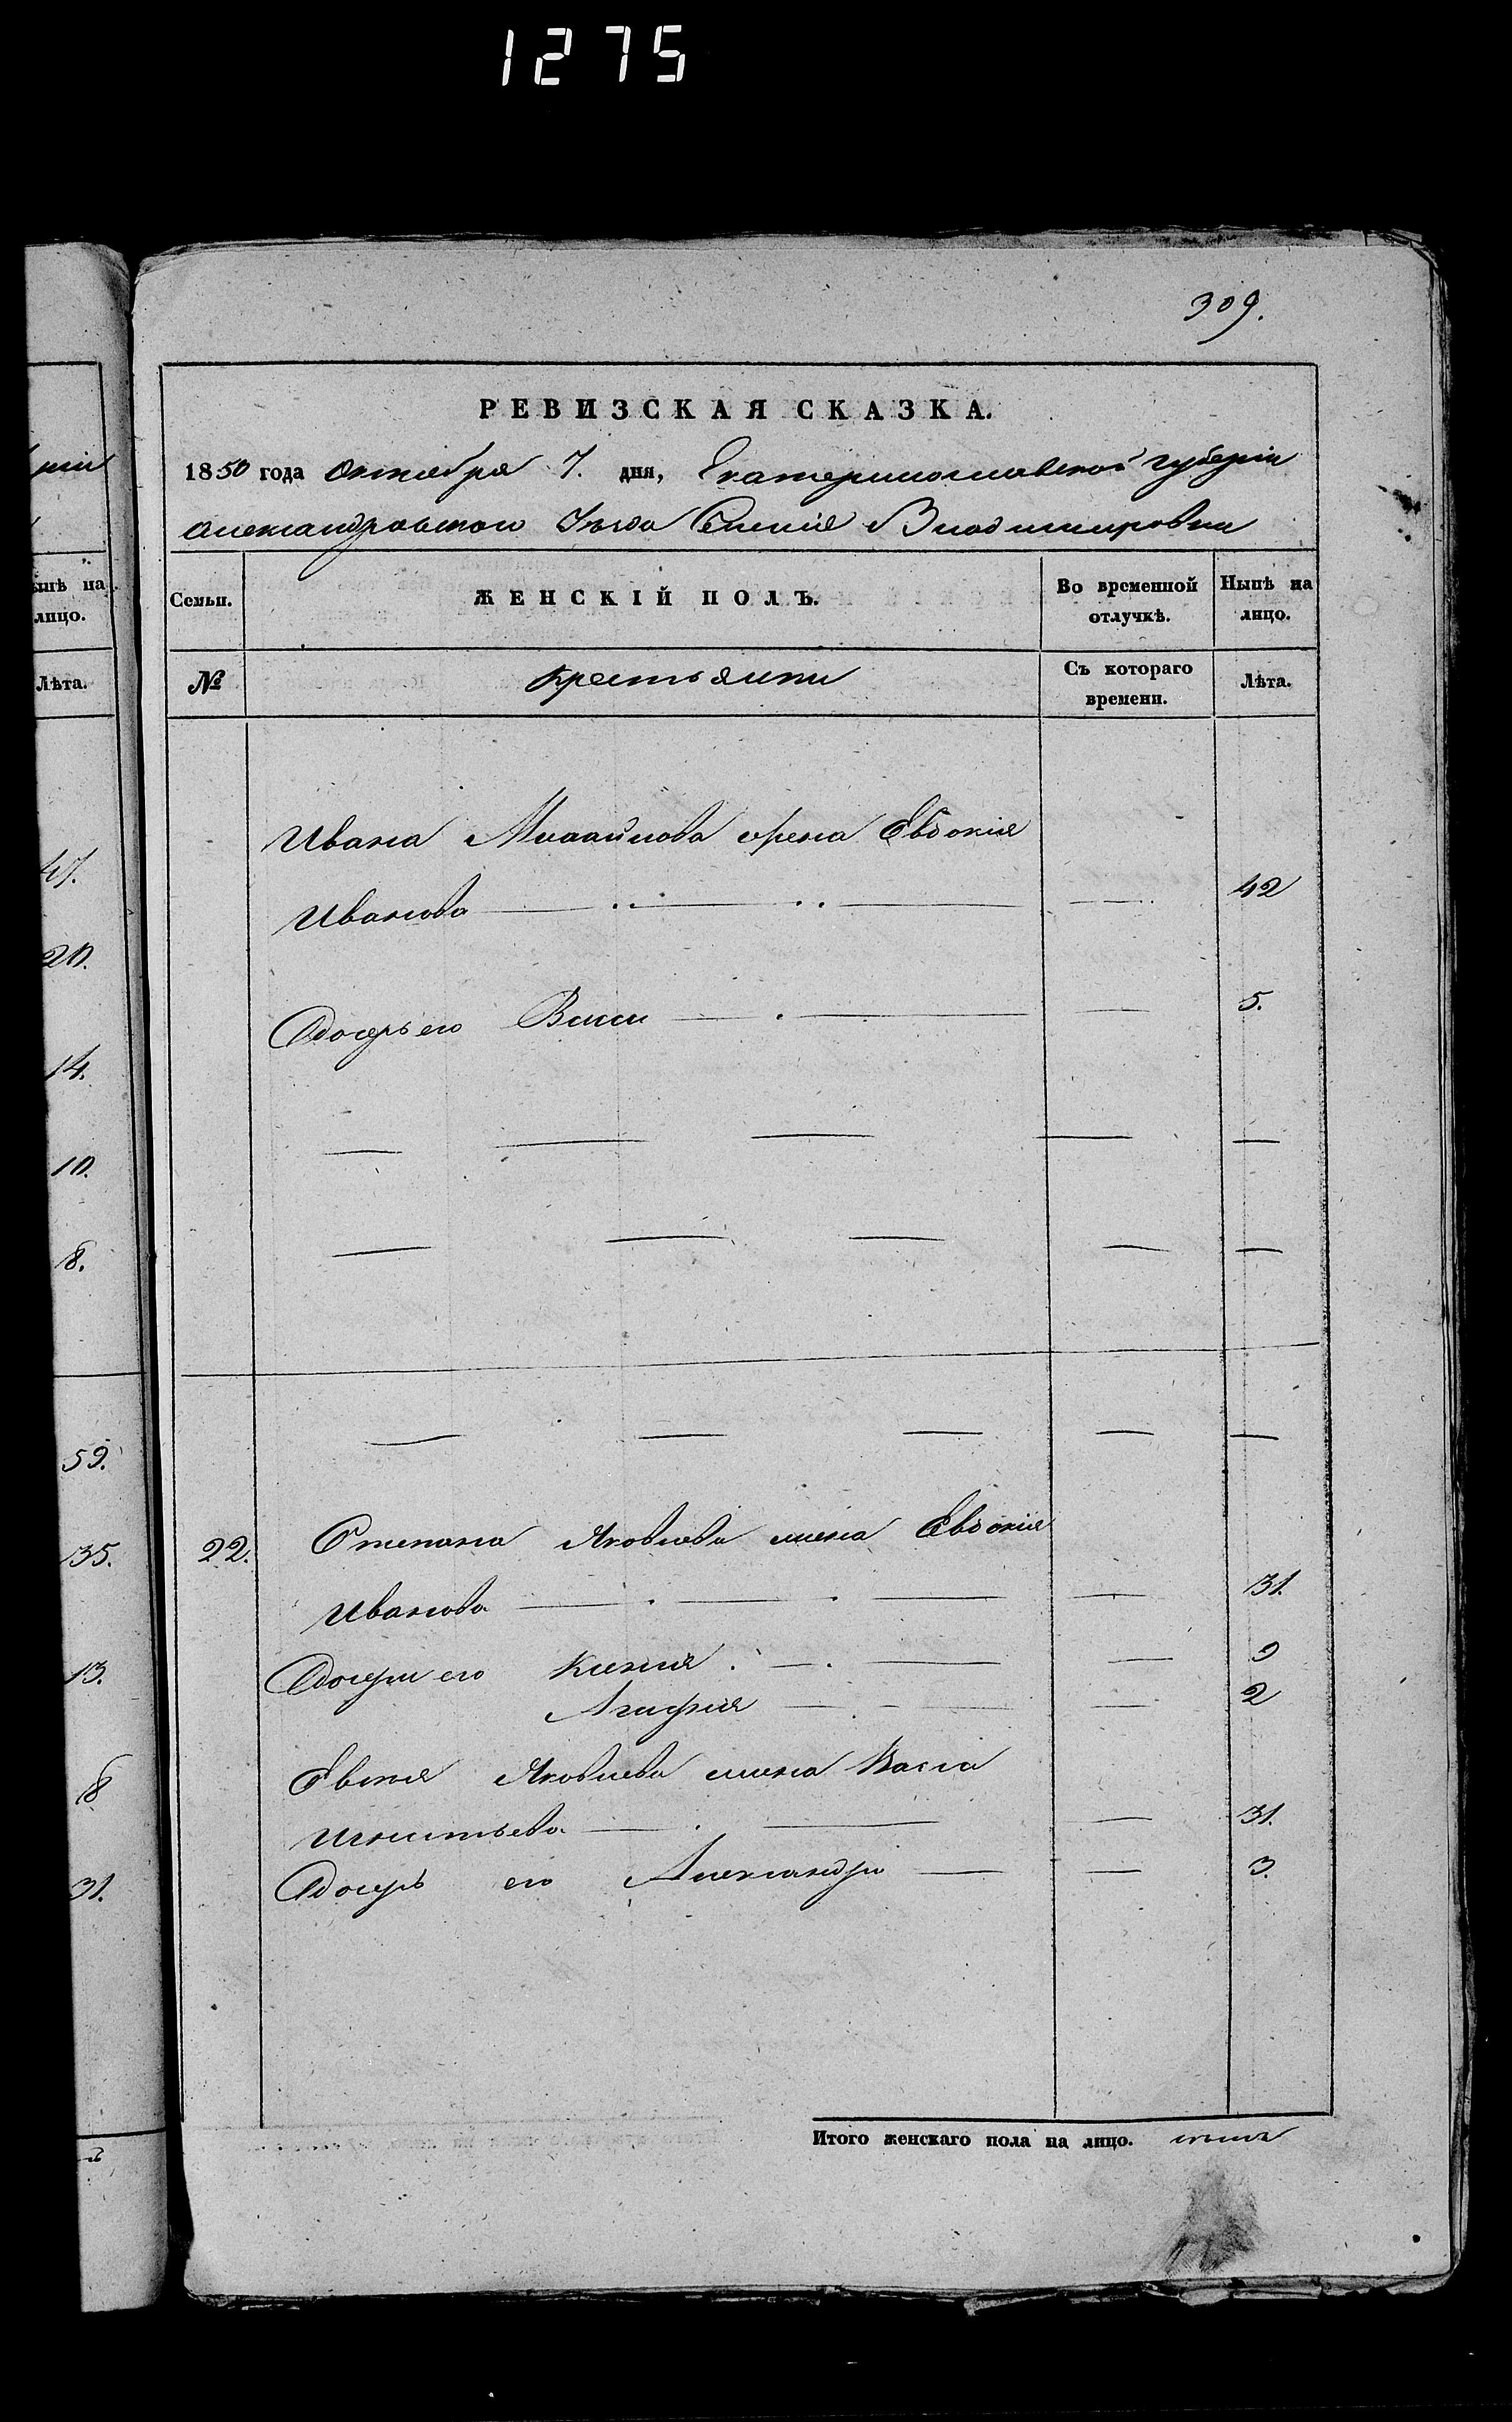 1275
309.
РЕВИЗСКАЯ СКАЗКА.
1850 года Октября 7. дня, Екатеринославской губерніи
Александровского Уѣзда Селенія Владимировки
Семьи.
ЖЕНСКІЙ ПОЛЪ.
Во временной отлучкѣ.
Нынѣ на лицо.
№
Крестьянки
Съ котораго времени.
Лѣта.
Ивана Михайлова жена Евдокія
Иванова 42
Дочерь его 5.
22. Степана Яковлева жена Евдокія
Иванова 31.
Дочери его Ксенія 9
Агафія 2
Яковлева жена Васса
Игнатьева 31.
Дочерь его Александра 3.
Итого женскаго пола на лицо.
ынѣ на
лицо.
Лѣта.
47.
20.
14.
10.
8.
59.
35.
13.
8
31.